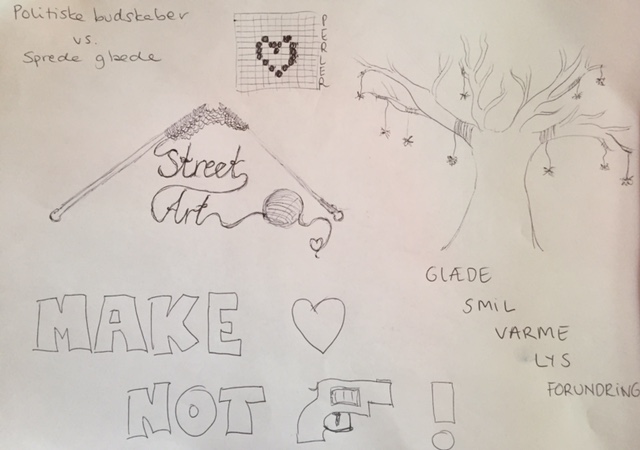 Politiske budskaber
vs.
Sprede glæde
PERLER
Street
Art
MAKE
NOT !
GLÆDE
SMIL
VARME
LYS
FORUNDRING